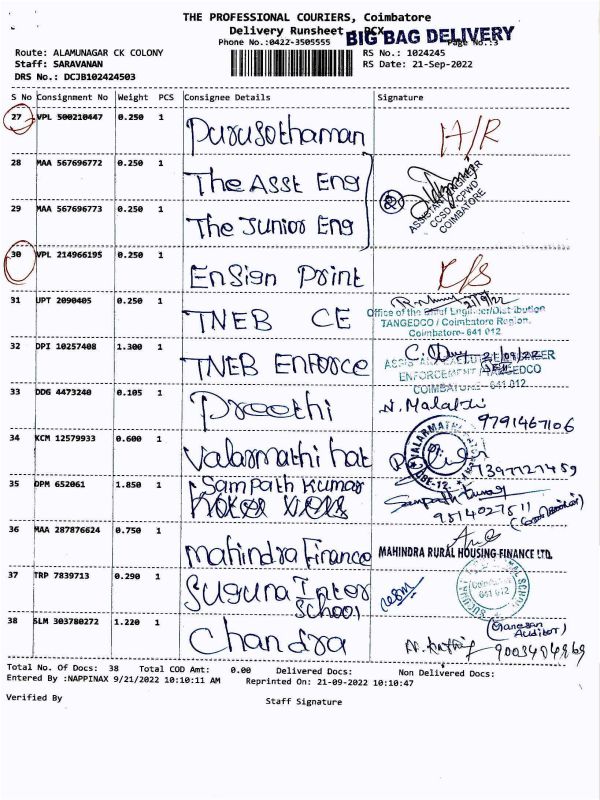 THE PROFESSIONAL COURIERS, Coimbatore
Delivery Runsheet - DCX
BIG BAG DELIVERY
Phone No.:0422-3505555
Page No.:3
Route: ALAMUNAGAR CK COLONY
RS No.: 1024245
Staff: SARAVANAN
RS Date: 21-Sep-2022
DRS No.: DCJB102424503
S No Consignment No Weight PCS Consignee Details Signature
27 VPL 500210447 0.250 1 Purusothaman H/R
28 MAA 567696772 0.250 1 The Asst Eng
ASSISTANT ENGINEER
CCSD-I/CPWD
COIMBATORE
29 MAA 567696773 0.250 1 The Junior Eng
30 VPL 214966195 0.250 1 Ensign Print
31 UPT 2090405 0.250 1 TNEB CE
21/9/22
Office of the Chief Engineer/Distribution
TANGEDCO / Coimbatore Region.
Coimbatore- 641 012
32 DPI 10257408 1.300 1 TNEB Enforce
21/09/22
ASSISTANT EXECUTIVE ENGINEER
ENFORCEMENT / TANGEDCO
COIMBATORE - 641 012
33 DDG 4473240 0.105 1 Preethi
9791467106
34 KCM 12579933 0.600 1 Valarmathi hat
35 DPM 652061 1.850 1 Sampath Kumar
Sampath Kumar
9514027811
36 MAA 287876624 0.750 1 Mahindra Finance
MAHINDRA RURAL HOUSING FINANCE LTD.
37 TRP 7839713 0.290 1 Suguna Inter
School
Coimbatore
641 012
38 SLM 303780272 1.220 1 Chandra
(Ganesan
Auditor)
Total No. Of Docs: 38 Total COD Amt: 0.00 Delivered Docs: Non Delivered Docs:
Entered By :NAPPINAX 9/21/2022 10:10:11 AM Reprinted On: 21-09-2022 10:10:47
Verified By Staff Signature